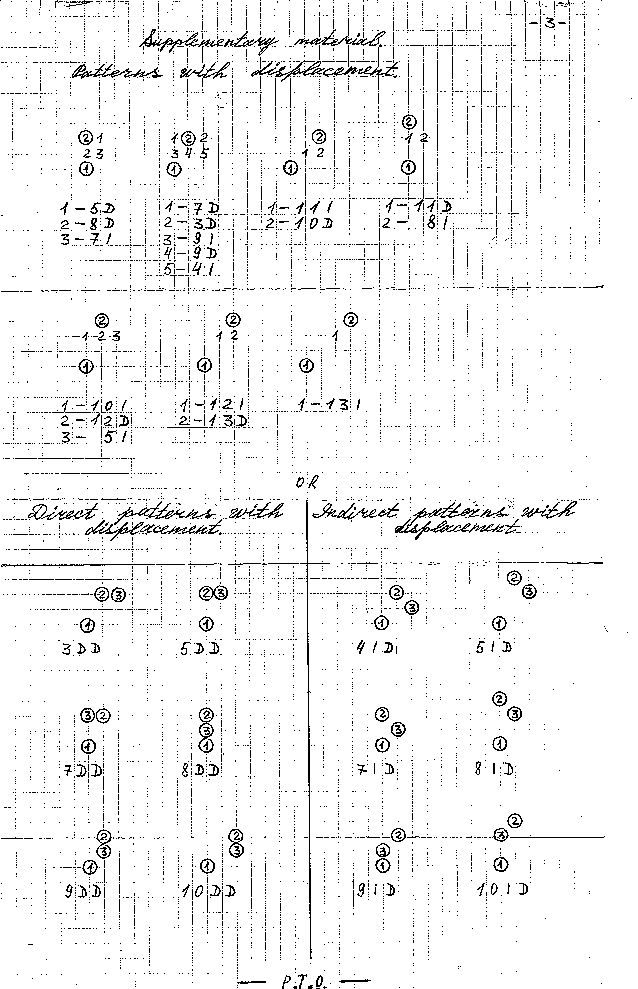 - 3 -
Supplementary material.
Patterns with displacement.
② 1 1 ② 2 ② ②
2 3 3 4 5 1 2 1 2
① ① ① ①
1 - 5 D 1 - 7 D 1 - 11 I 1 - 11 D
2 - 8 D 2 - 3 D 2 - 10 D 2 - 8 I
3 - 7 I 3 - 9 I
4 - 9 D
5 - 4 I
② ② ②
1 2 3 1 2 1
① ① ①
1 - 10 I 1 - 12 I 1 - 13 I
2 - 12 D 2 - 13 D
3 - 5 I
OR
Direct patterns with Indirect patterns with
displacement. displacement.
②③ ②③ ② ②
③ ③
① ① ① ①
3 D D 5 D D 4 I D 5 I D
③② ② ② ②
③ ③ ③
① ① ① ①
7 D D 8 D D 7 I D 8 I D
② ② ② ②
③ ③ ③ ③
① ① ① ①
9 D D 10 D D 9 I D 10 I D
— P.T.O. —